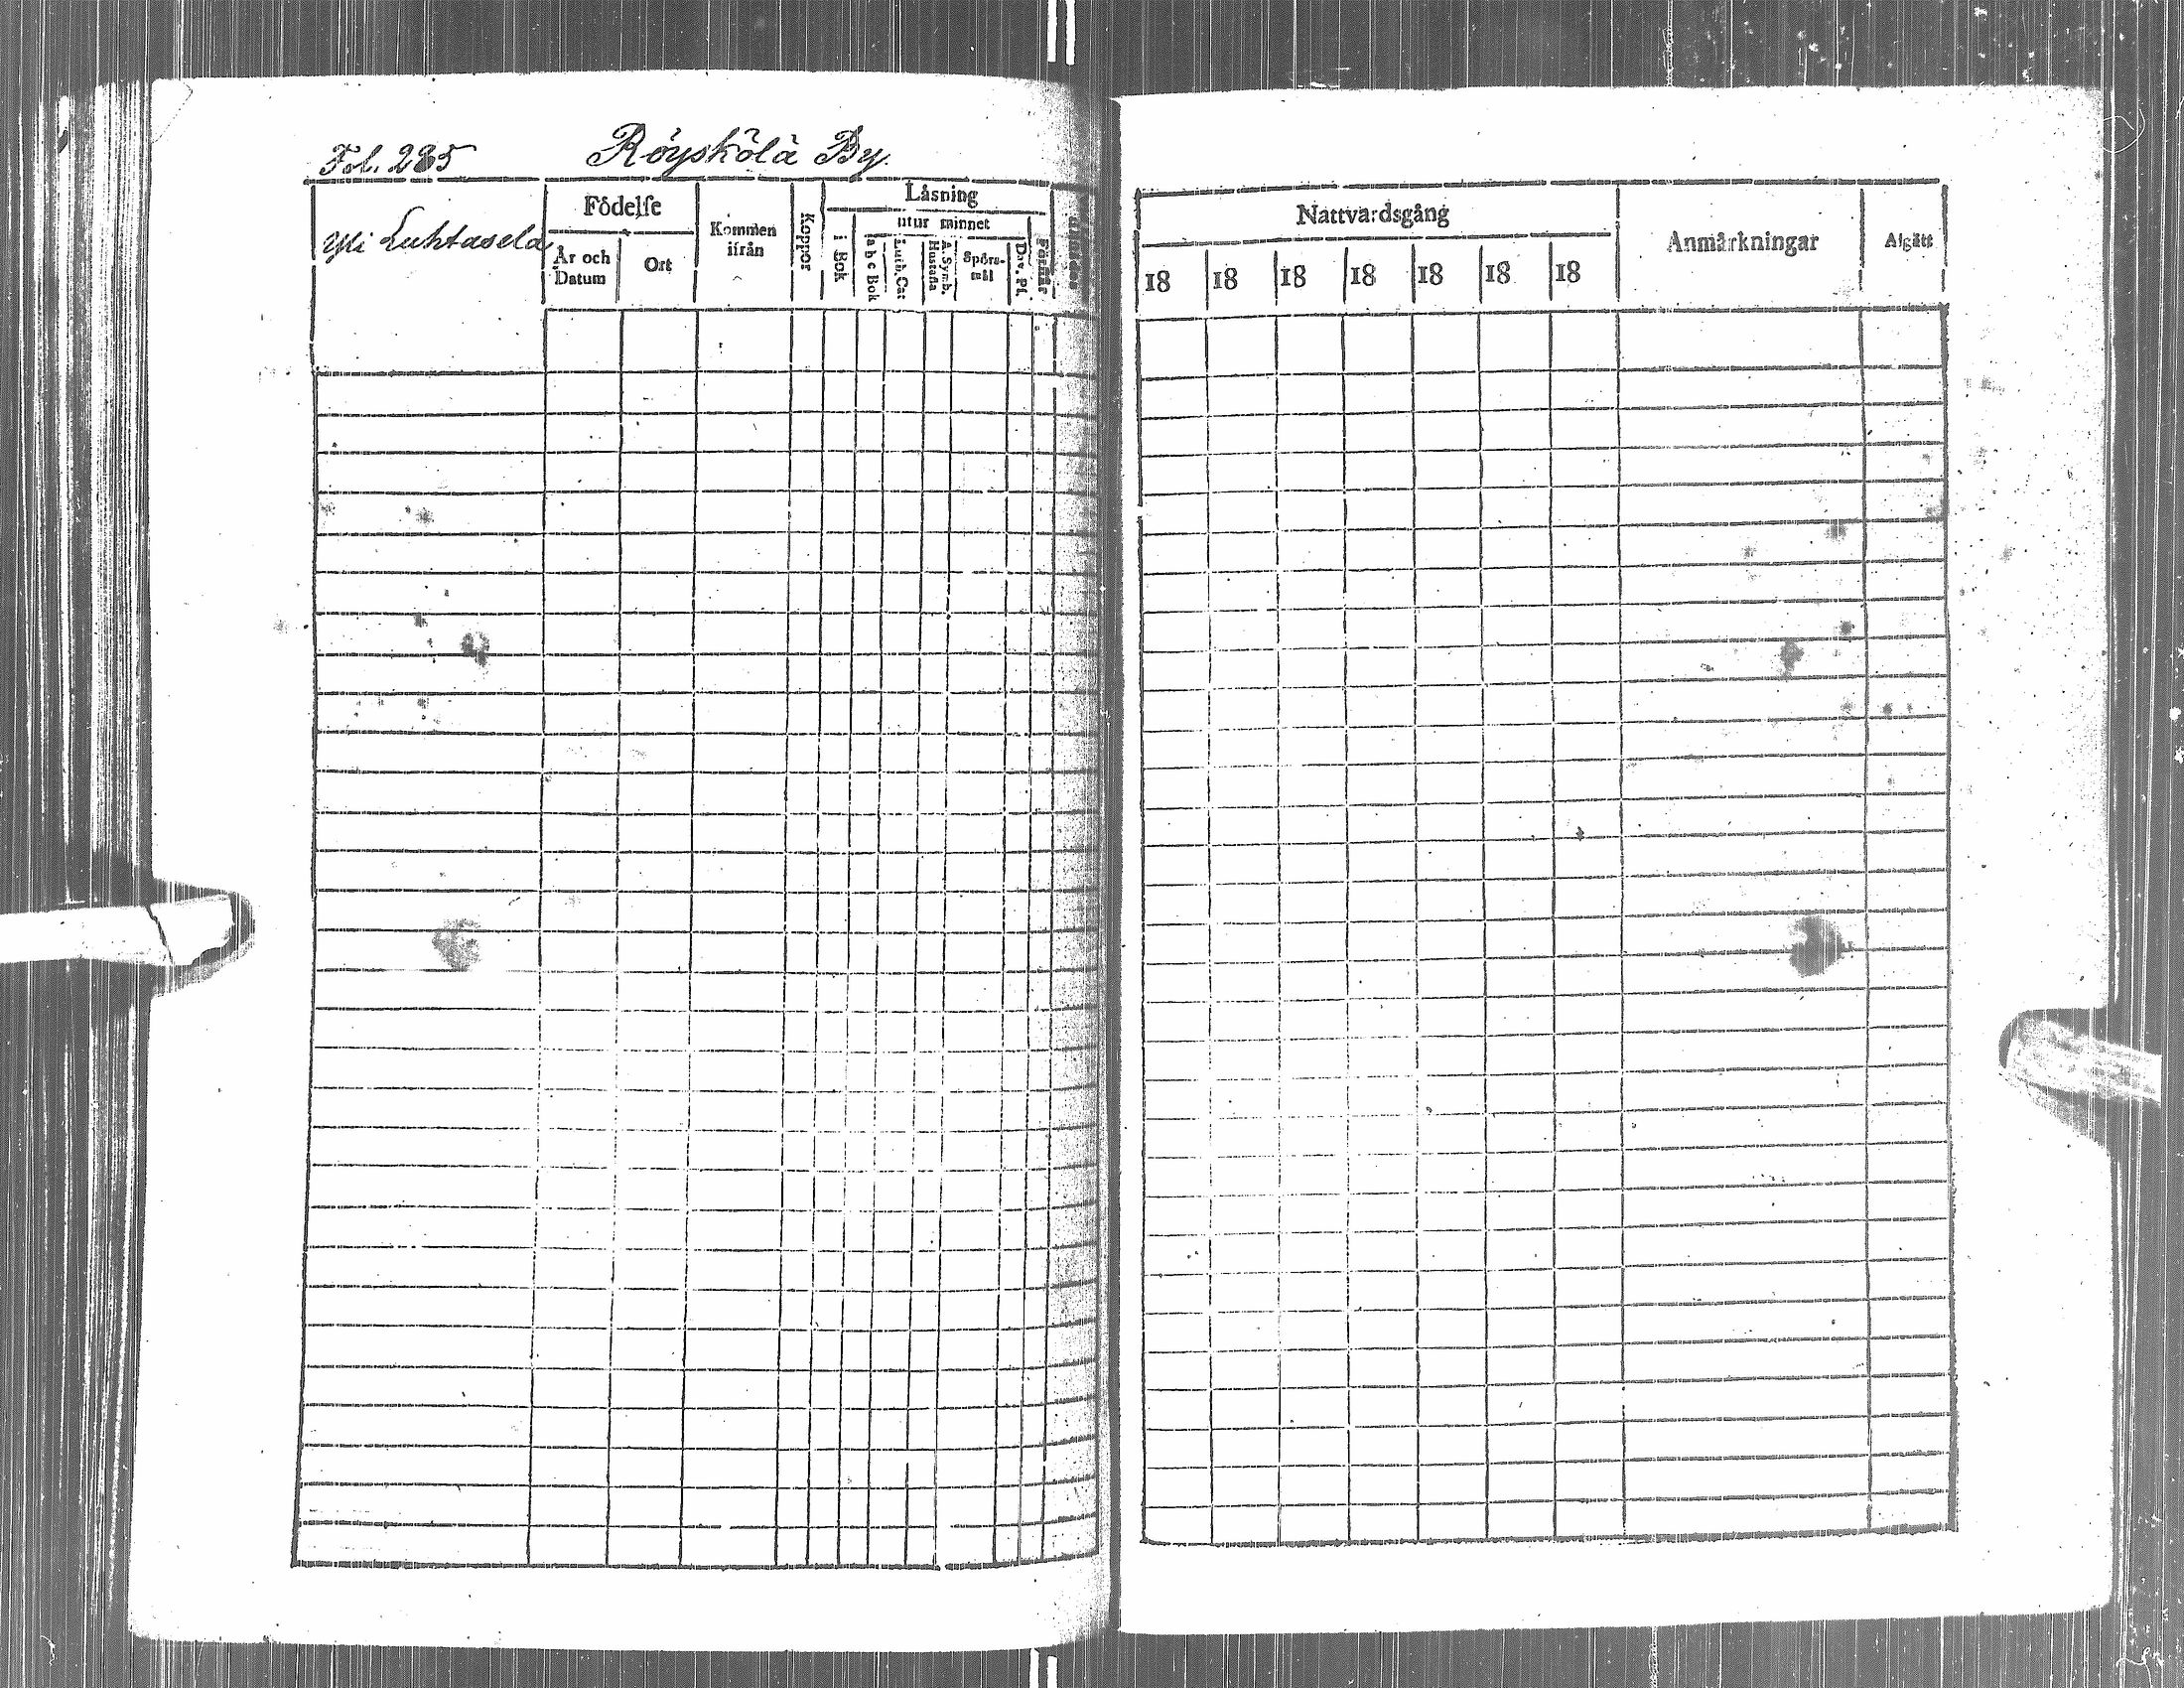 Fol. 285 Röyskölä By.
Yli Luhtasela
Födelse
År och Datum
Ort
Kommen ifrån
Koppor
Läsning
i Bok
utur minnet
a b c Bok
Luth. Cat
A. Symb. Hustafla
Spörs-mål
Dav. Ps.
Förstår
Nattvardsgång
18 18 18 18 18 18 18
Anmärkningar
Afgått